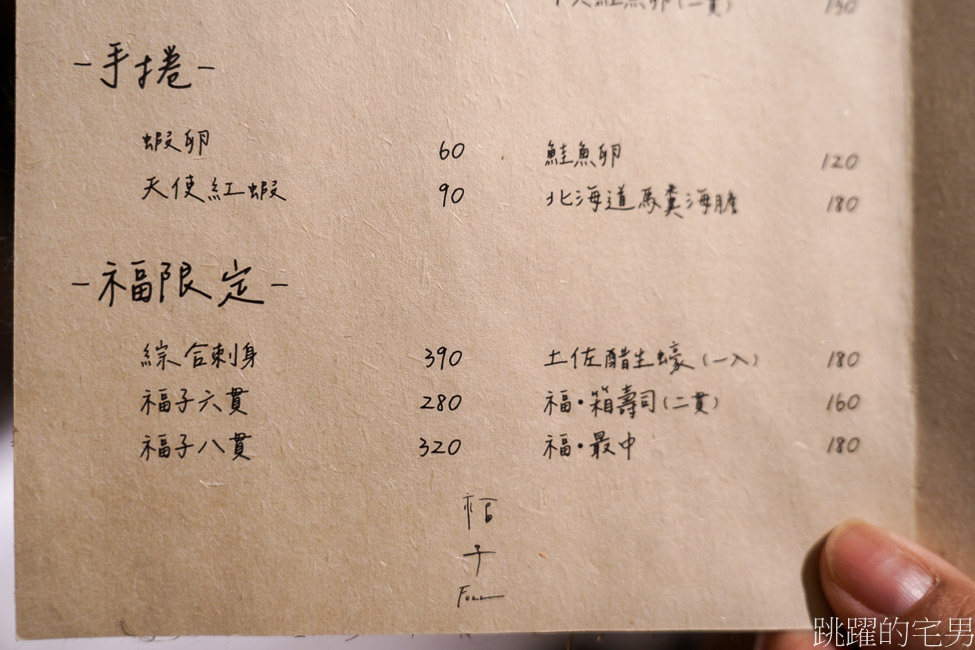 150
-手捲-
蝦卵 60 鮭魚卵 120
天使紅蝦 90 北海道馬糞海膽 180
-福限定-
綜合刺身 390 土佐醋生蠔(一入) 180
福子六貫 280 福·箱壽司(二貫) 160
福子八貫 320 福·最中 180
子
跳躍的宅男